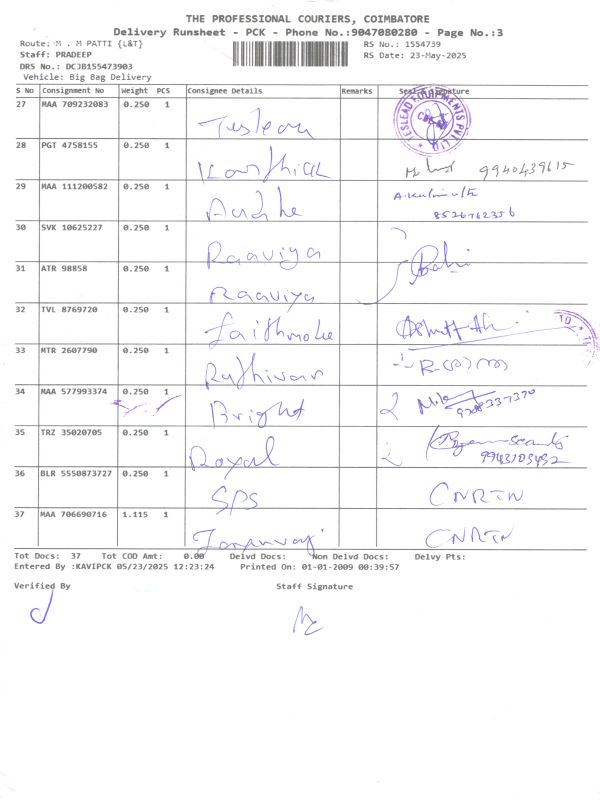 THE PROFESSIONAL COURIERS, COIMBATORE
Delivery Runsheet - PCK - Phone No.:9047080280 - Page No.:3
Route: M . M PATTI {L&T}
RS No.: 1554739
Staff: PRADEEP
RS Date: 23-May-2025
DRS No.: DCJB155473903
Vehicle: Big Bag Delivery
S No Consignment No Weight PCS Consignee Details Remarks Seal Signature
27 MAA 709232083 0.250 1 TESLEAD EQUIPMENTS PVT. LTD.
28 PGT 4758155 0.250 1 Karthick 9940439615
29 MAA 111200582 0.250 1 8526762356
30 SVK 10625227 0.250 1 Raaviya
31 ATR 98858 0.250 1 Raaviya
32 TVL 8769720 0.250 1
33 MTR 2607790 0.250 1
34 MAA 577993374 0.250 1 Bright
35 TRZ 35020705 0.250 1 Royal
36 BLR 5550873727 0.250 1 SPS CNRIN
37 MAA 706690716 1.115 1 CNRIN
Tot Docs: 37 Tot COD Amt: 0.00 Delvd Docs: Non Delvd Docs: Delvy Pts:
Entered By :KAVIPCK 05/23/2025 12:23:24 Printed On: 01-01-2009 00:39:57
Verified By Staff Signature